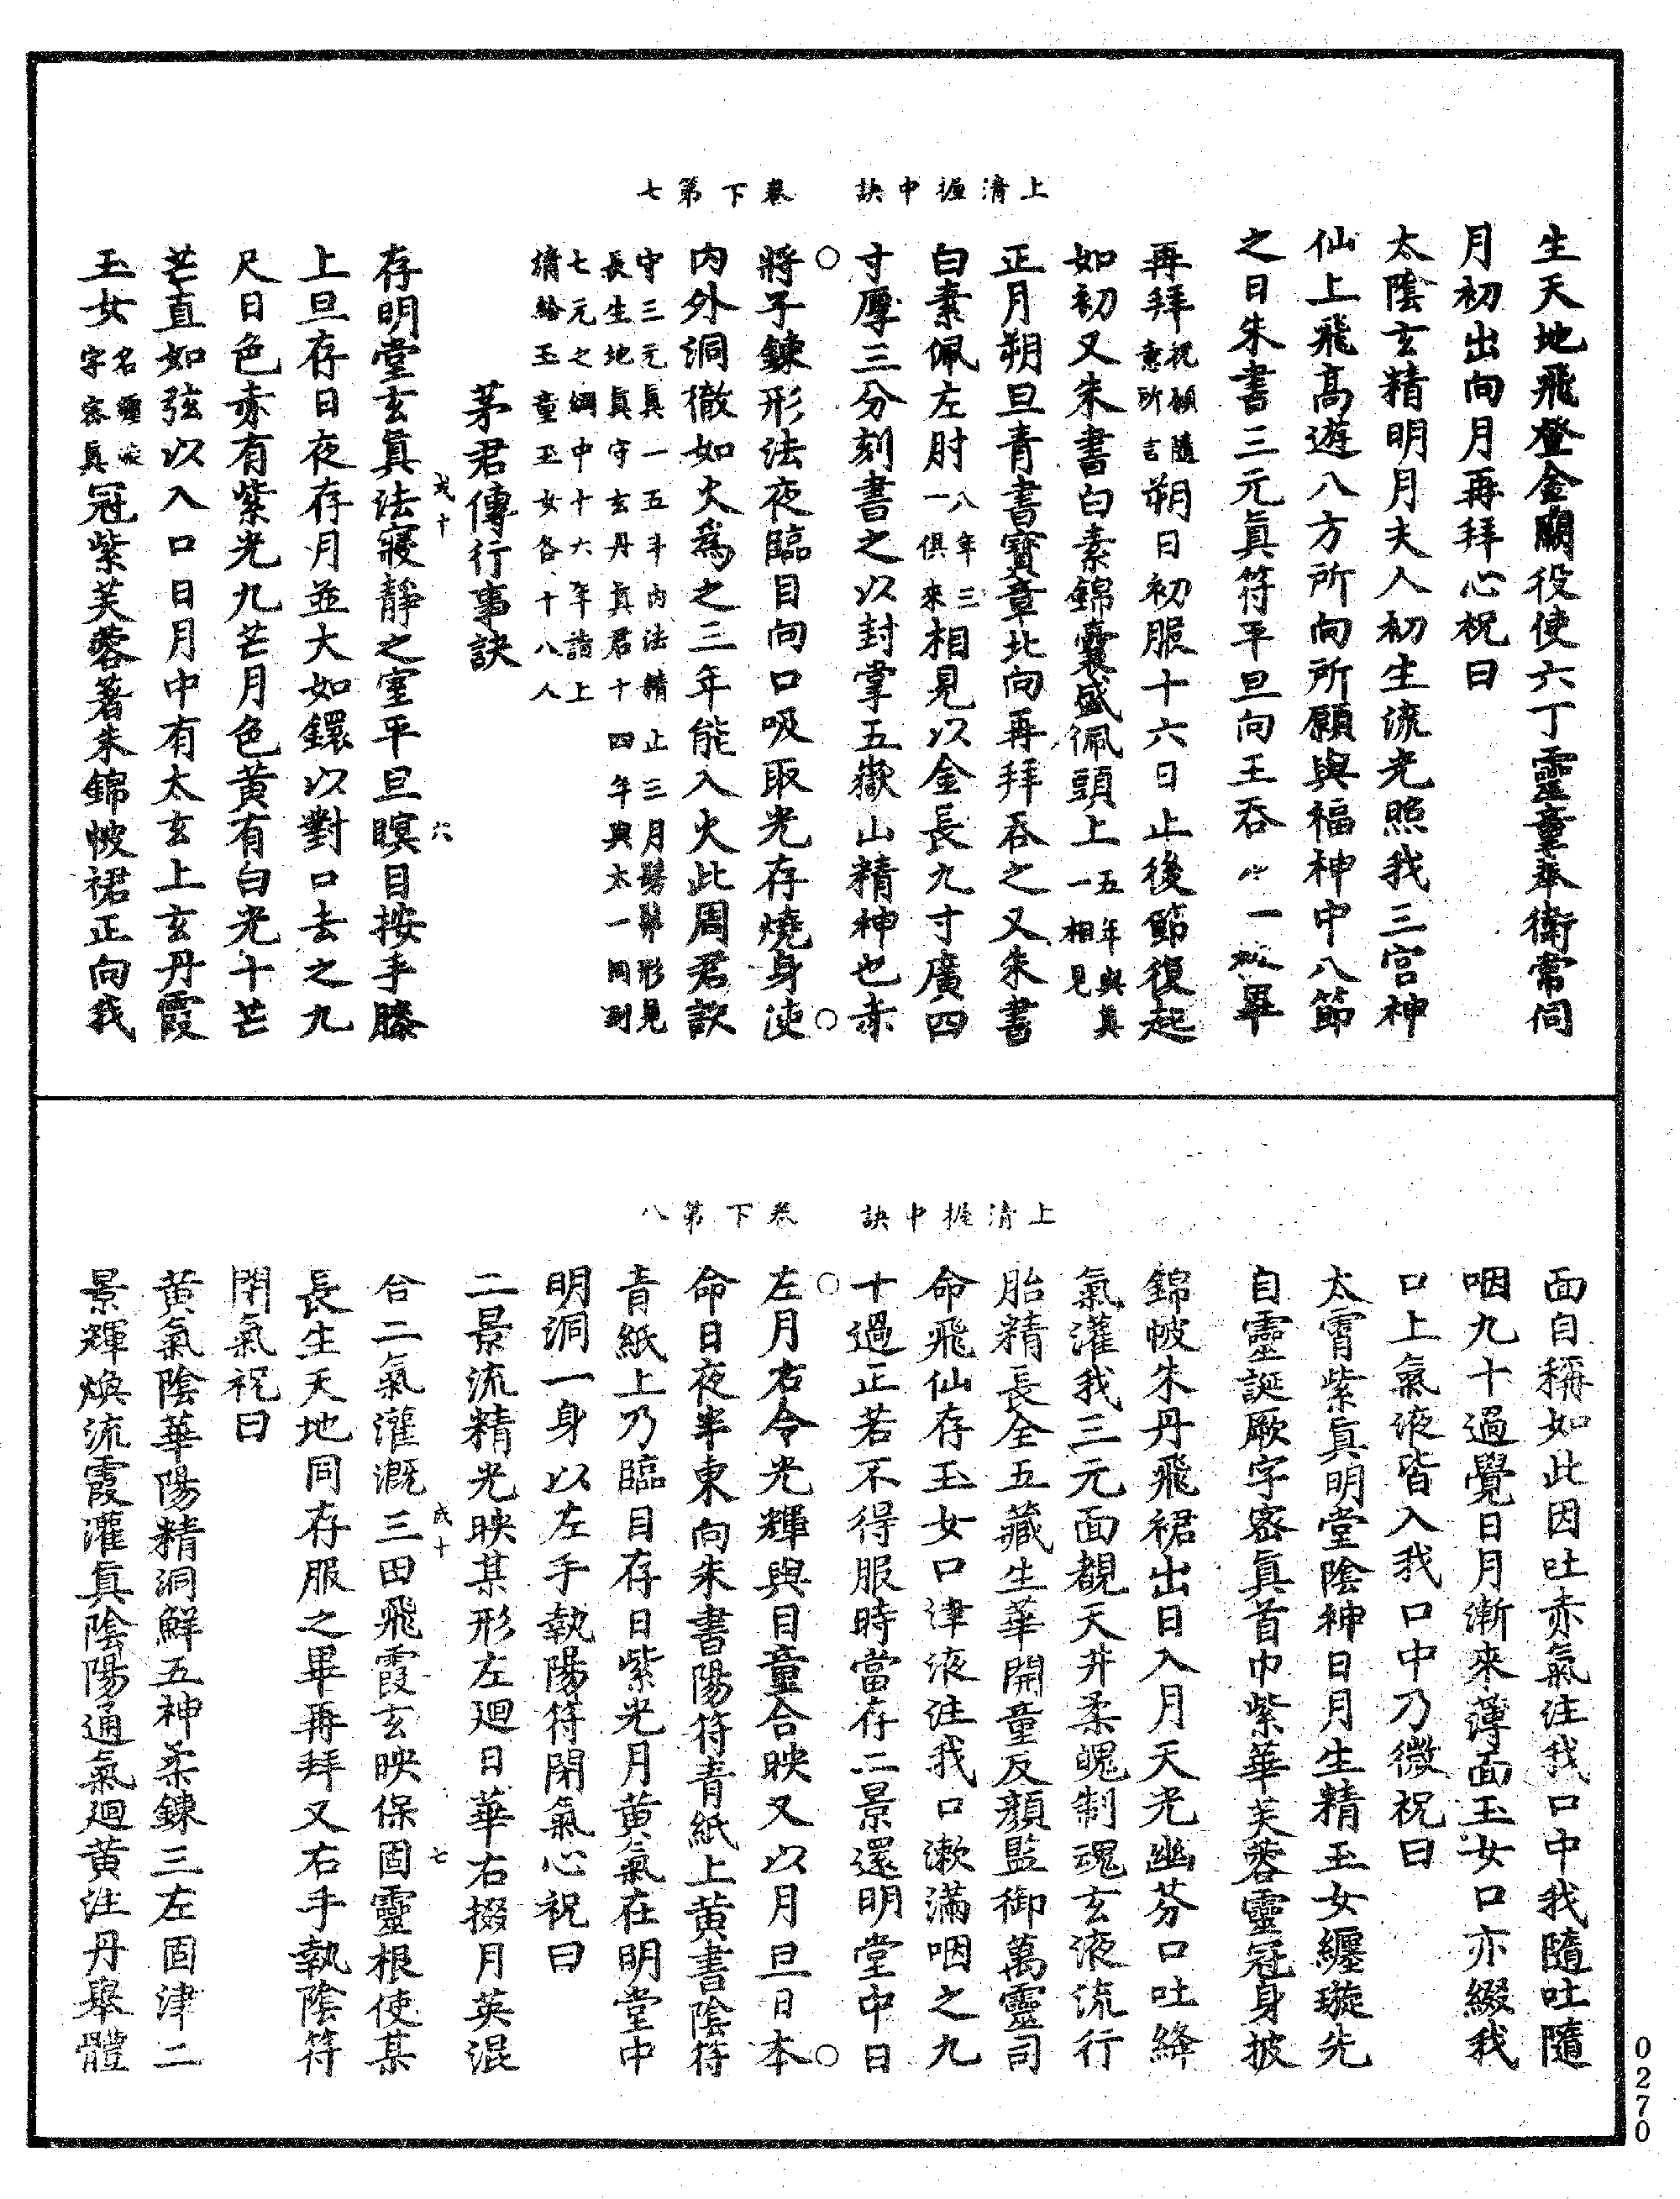 上清握中訣　卷下第七
生天地飛登金闕役使六丁靈童奉衛常伺
月初出向月再拜心祝曰
太陰玄精明月夫人初生流光照我三宮神
仙上飛高遊八方所向所願與福神中八節
之日朱書三元眞符平旦向王吞一畢
再拜祝願隨意所言朔日初服十六日止後節復起
如初又朱書白素錦囊盛佩頭上五年與眞一相見
正月朔旦青書寶章北向再拜吞之又朱書
白素佩左肘八年三一俱來相見以金長九寸廣四
寸厚三分刻書之以封掌五嶽山精神也赤
將子鍊形法夜臨目向口吸取光存燒身使
內外洞徹如火爲之三年能入火此周君訣
守三元眞一五斗內法精止三月髣髴形見
長生地眞守玄丹眞君十四年與太一同到
七元之綱中十六年詣上
清給玉童玉女各十八人
茅君傳行事訣
存明堂玄眞法寢靜之室平旦瞑目按手膝
上旦存日夜存月並大如鐶以對口去之九
尺日色赤有紫光九芒月色黃有白光十芒
芒直如弦以入口日月中有太玄上玄丹霞
玉女名纏璇字密眞冠紫芙蓉著朱錦帔裙正向我
上清握中訣　卷下第八
面自稱如此因吐赤氣注我口中我隨吐隨
咽九十過覺日月漸來薄面玉女口亦綴我
口上氣液皆入我口中乃微祝曰
太霄紫眞明堂陰神日月生精玉女纏璇先
自靈誕厥字密眞首巾紫華芙蓉靈冠身披
錦帔朱丹飛裙出日入月天光幽芬口吐絳
氣灌我三元面覩天井柔魄制魂玄液流行
胎精長全五藏生華開童反顏監御萬靈司
命飛仙存玉女口津液注我口漱滿咽之九
十過正若不得服時當存二景還明堂中日
左月右令光輝與目童合映又以月旦日本
命日夜半東向朱書陽符青紙上黃書陰符
青紙上乃臨目存日紫光月黃氣在明堂中
明洞一身以左手執陽符閉氣心祝曰
二景流精光映某形左廻日華右掇月英混
合二氣灌漑三田飛霞玄映保固靈根使某
長生天地同存服之畢再拜又右手執陰符
閉氣祝曰
黃氣陰華陽精洞鮮五神柔鍊三左固津二
景輝煥流霞灌眞陰陽通氣廻黃注丹舉體
0270